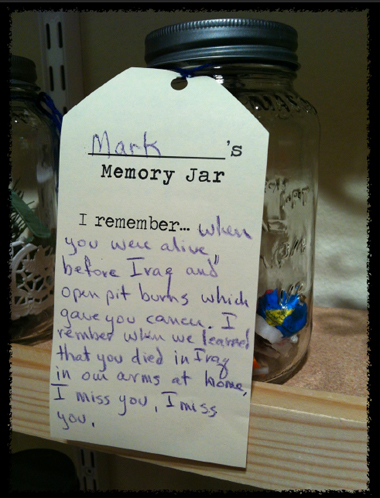 Mark's
Memory Jar
I remember... when
you were alive,
before Iraq and
open pit burns which
gave you cancer. I
rember when we learned
that you died in Iraq
in our arms at home,
I miss you, I miss
you.